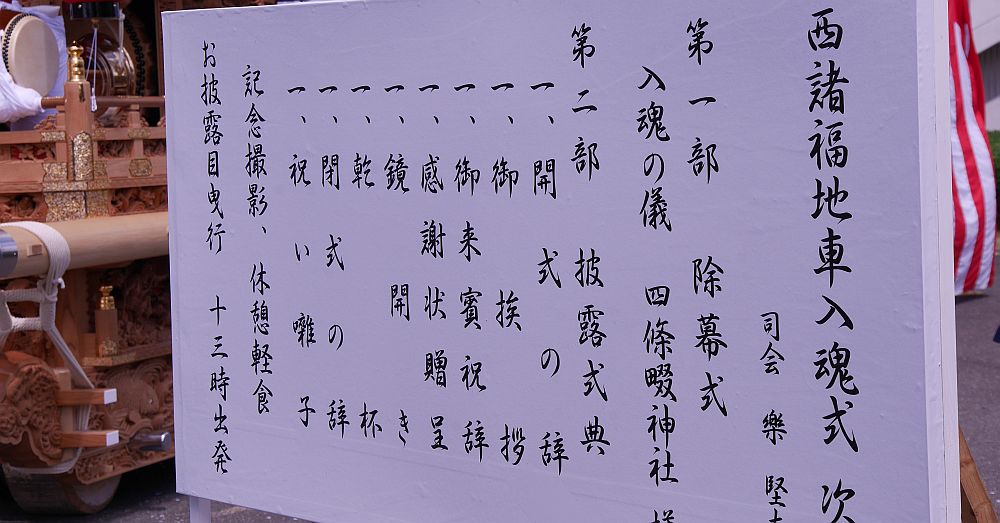 西諸福地車入魂式 次
司会 樂 堅
第一部 除幕式
入魂の儀 四條畷神社 様
第二部 披露式典
一、開式の辞
一、御挨拶
一、御来賓祝辞
一、感謝状贈呈
一、鏡開き
一、乾杯
一、閉式の辞
一、祝い囃子
記念撮影、休憩軽食
お披露目曳行 十三時出発